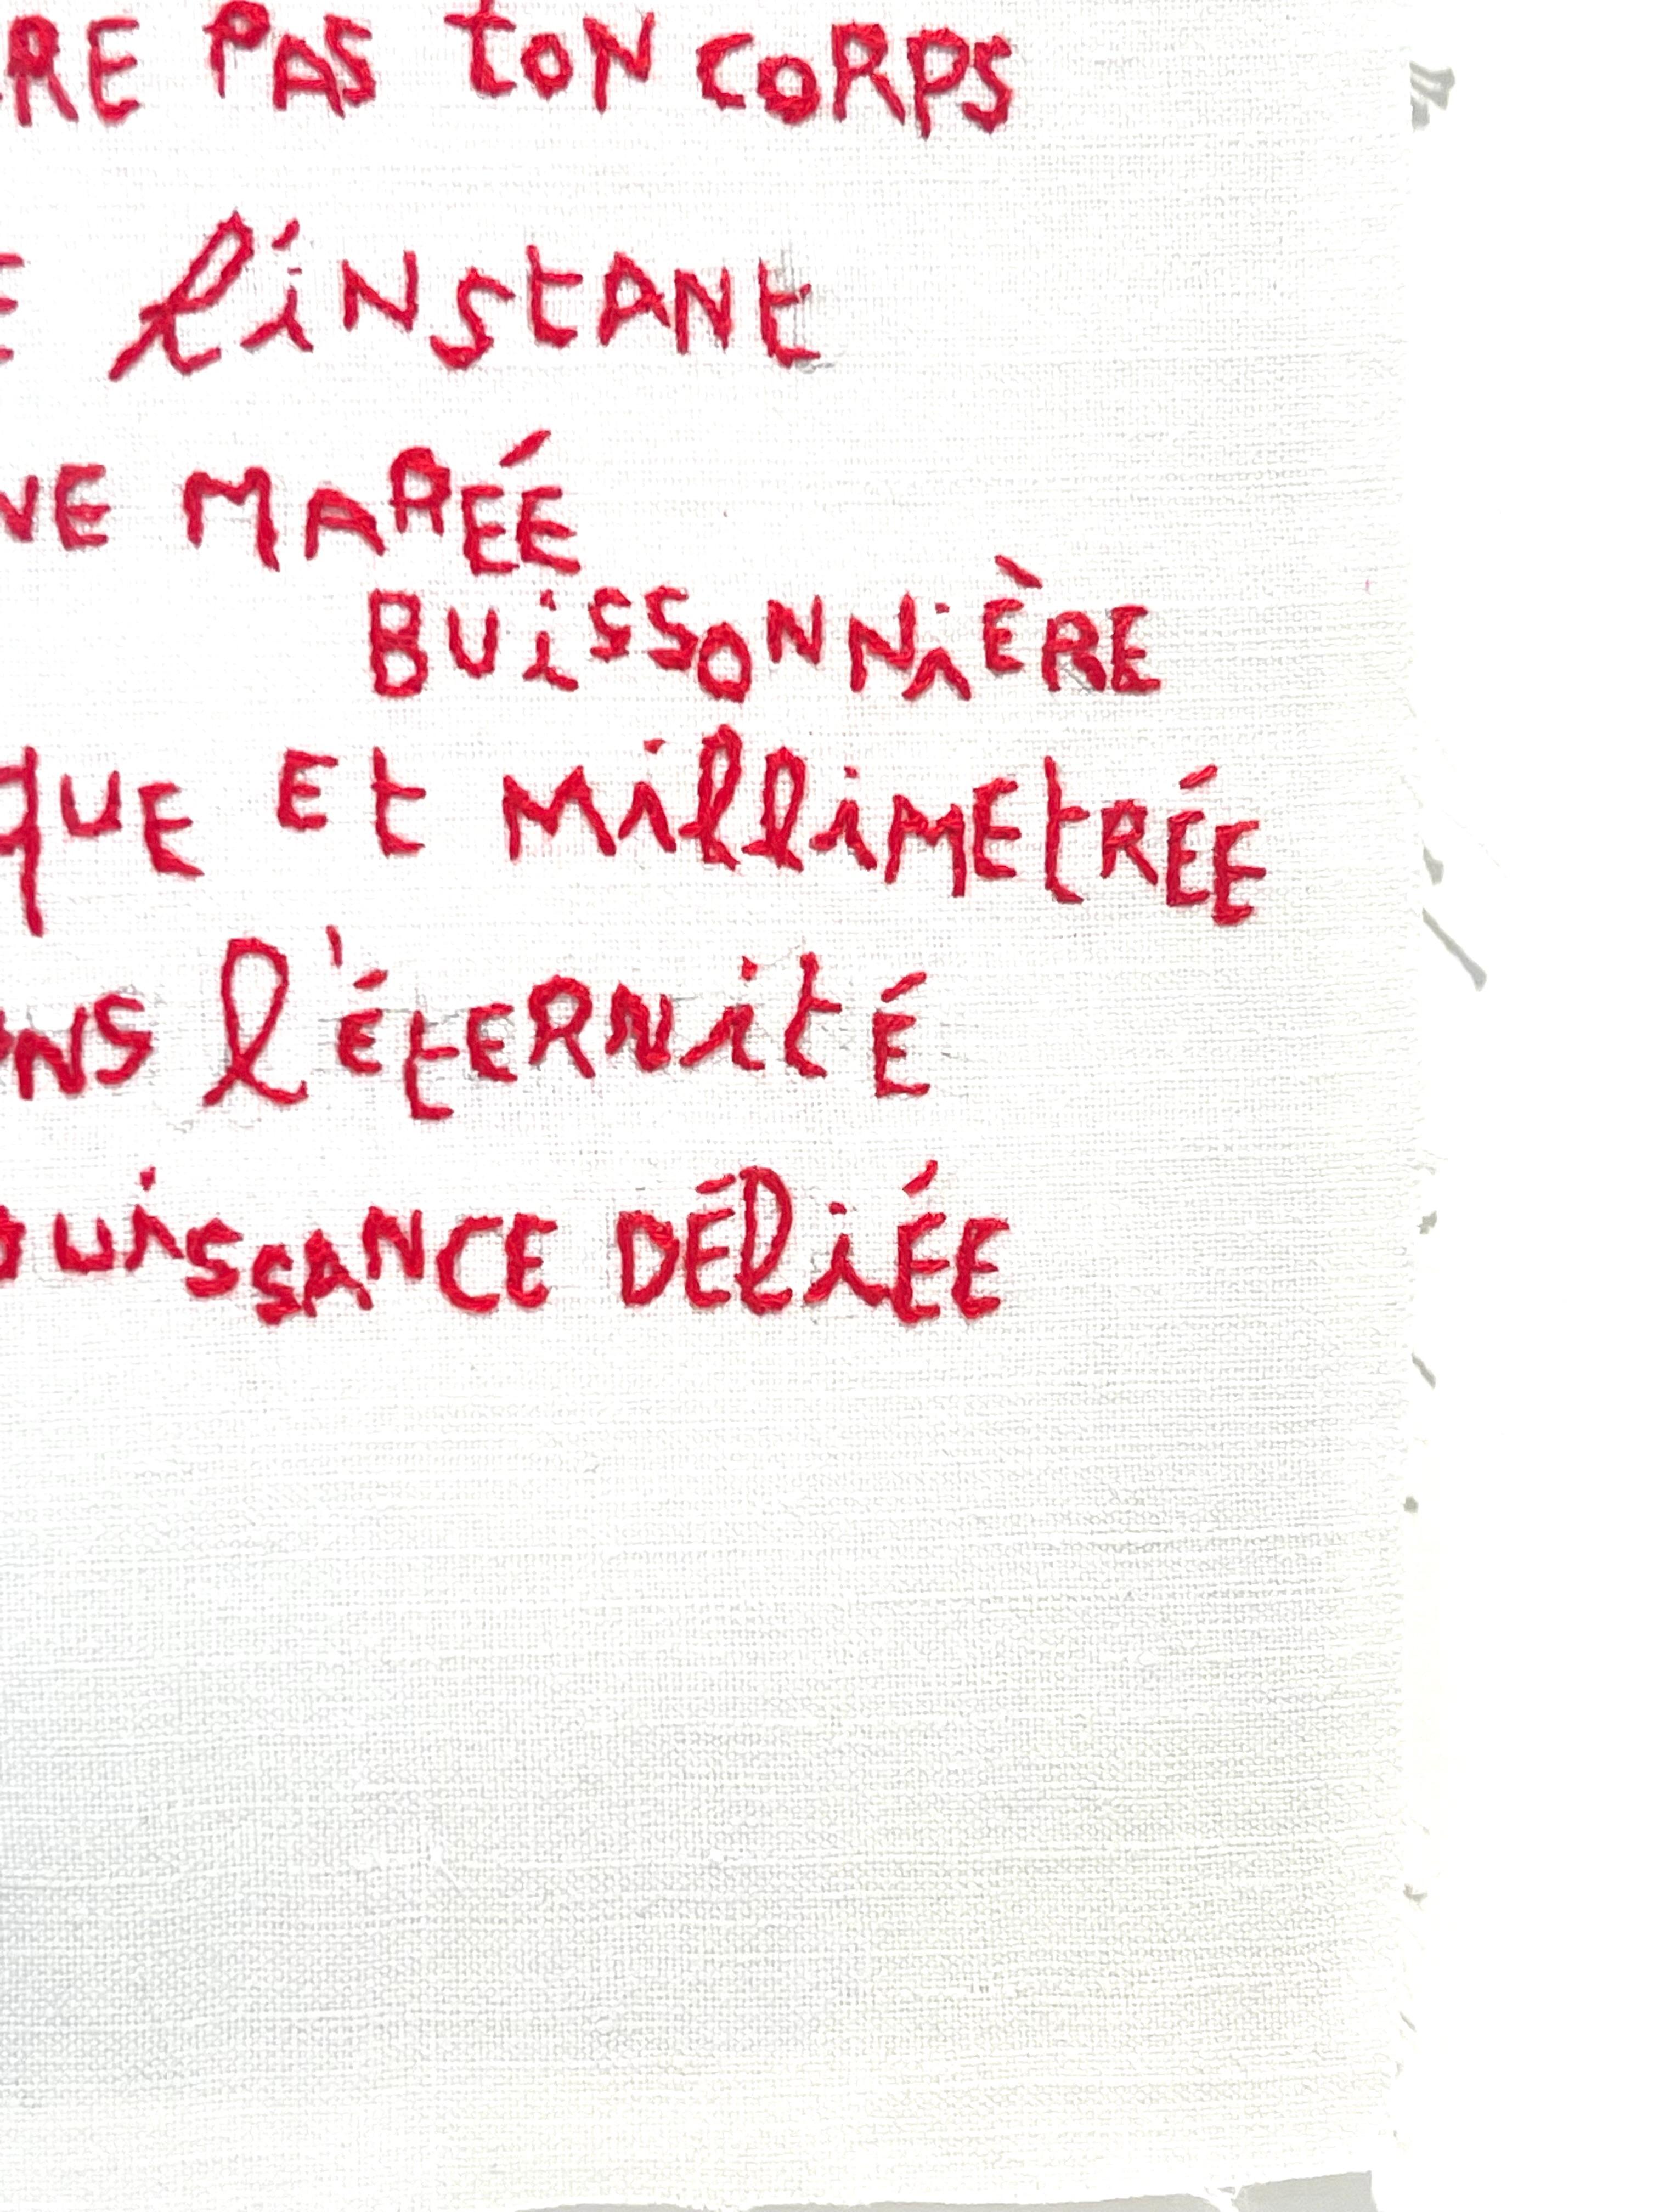 RE PAS tON CORPS
E l'iNStANt
NE MARÉE
BUiSSONNiÈRE
QUE Et MilliMEtRÉE
NS l'ÉtERNitÉ
UiSSANCE DÉliÉE